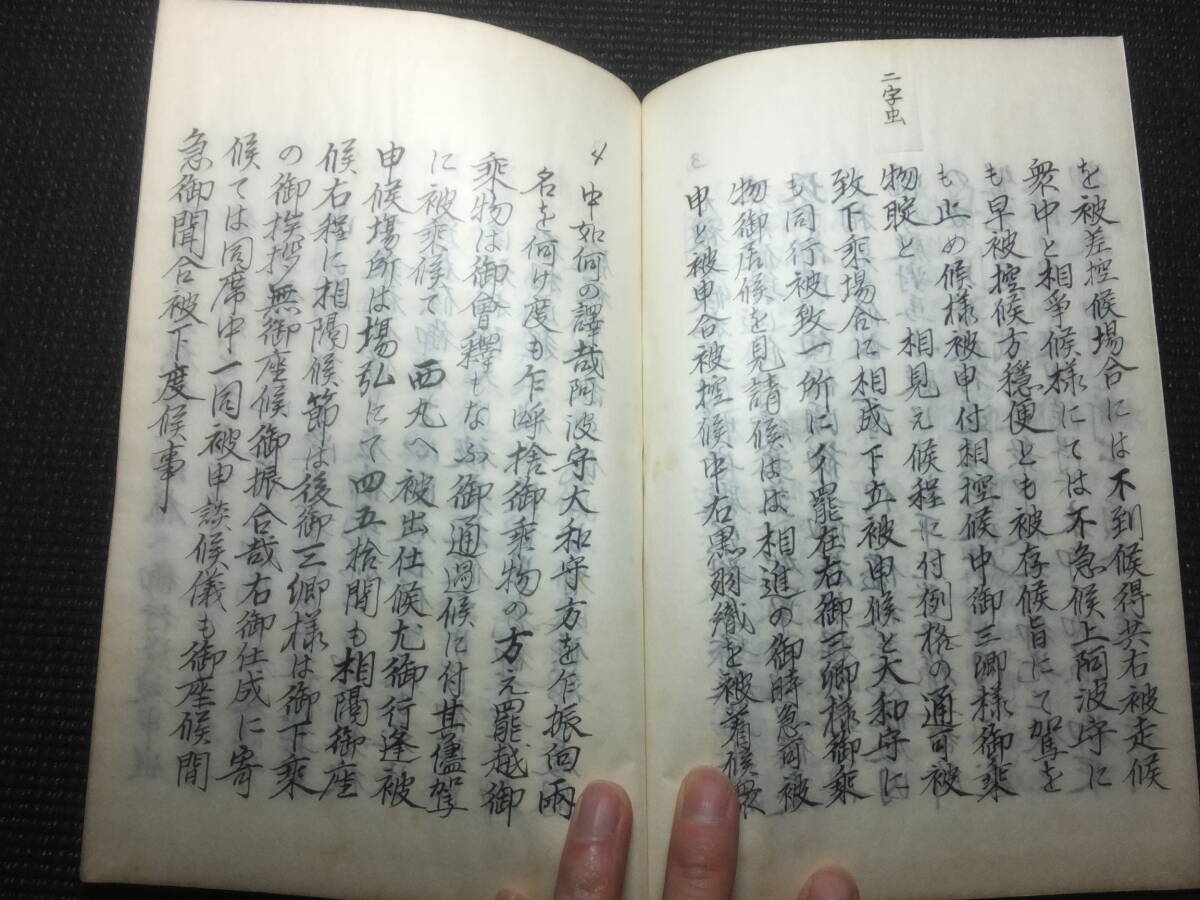 二字虫
3
を被差控候場合には不到候得共右被走候
衆中と相爭候様にては不急候上阿波守に
も早被控候方穏便とも被存候旨にて駕を
も止め候様被申付相控候中御三卿様御乘
物聢と　相見え候程に付例格の通可被
致下乘場合に相成下立被申候と大和守に
も同行被致一所に罷在右御三卿様御乘
物御居候を見請候はは相進の御時急可被
申と被申合被控候中右黒羽織を被着候衆
4
中如何の譯哉阿波守大和守方を乍振向兩
名を何け度も乍呼捨御乘物の方え罷越御
乘物は御會釋もなふ御通過候に付其儘駕
に被乘候て　西丸へ被出仕候尤御行逢被
申候場所は場弘にて四五拾間も相隔御座
候右程に相隔候節は後御三卿様は御下乘
の御挨拶無御座候御振合哉右御仕成に寄
候ては同席中一同被申談候儀も御座候間
急御聞合被下度候事